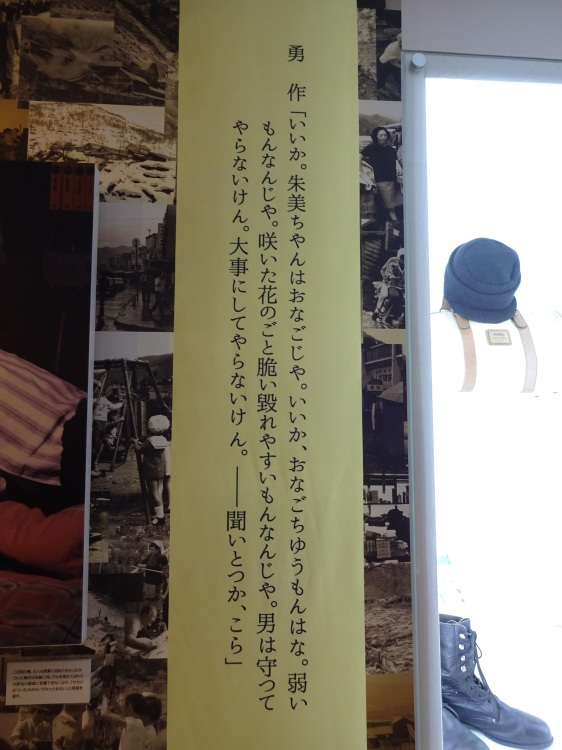 勇　作「いいか。朱美ちゃんはおなごじや。いいか、おなごちゆうもんはな。弱い
もんなんじや。咲いた花のごと脆い毀れやすいもんなんじや。男は守つて
やらないけん。大事にしてやらないけん。――聞いとつか、こら」